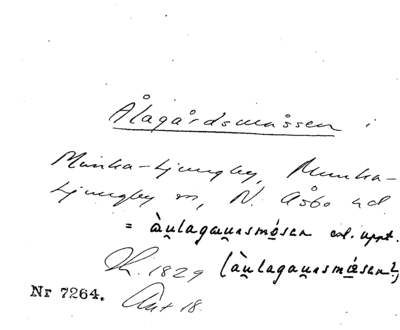 Ålagårdsmåssen i
Munka-Ljungby, Munka-
Ljungby sn, N. Åsbo hd.
= àu̯lagau̯ɹsmǫ́sen enl. uppt.
1829 (àu̯lagau̯ɹsmœ́sen?)
Nr 7264.